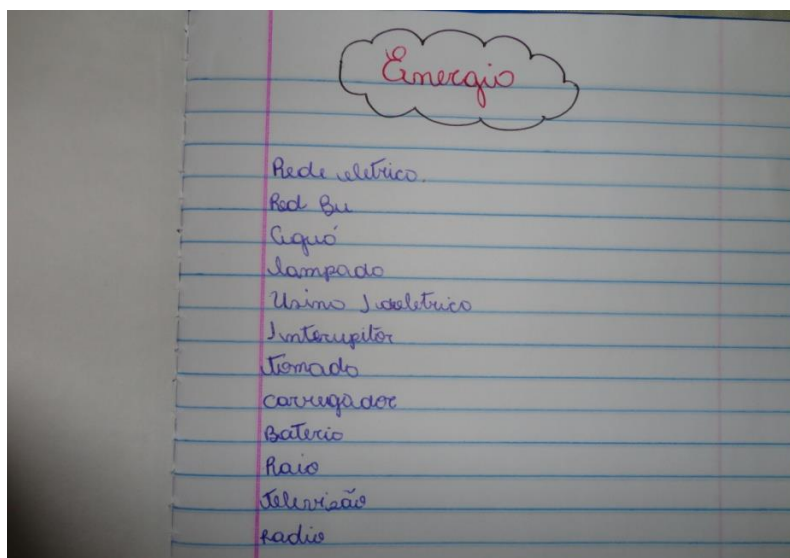 Energia
Rede eletrica.
Red Bu
Aguá
lampada
Usina Idoletrica
Interupitor
Tomada
carregador
Bateria
Raio
Televizão
Radio